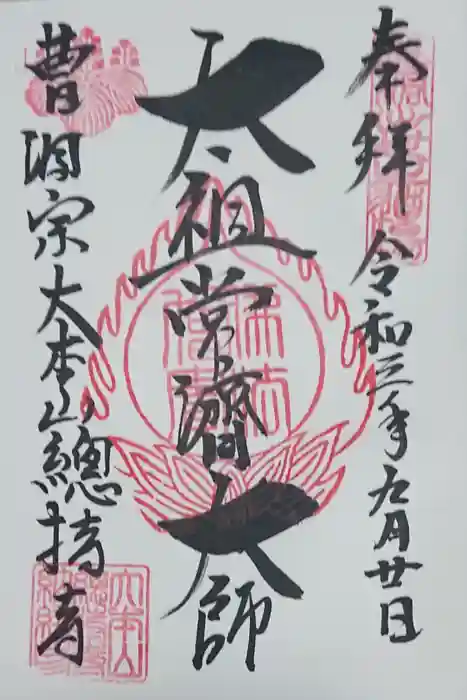 奉拝 令和三年九月廿日
太祖常濟大師
曹洞宗大本山總持寺
佛法僧寶